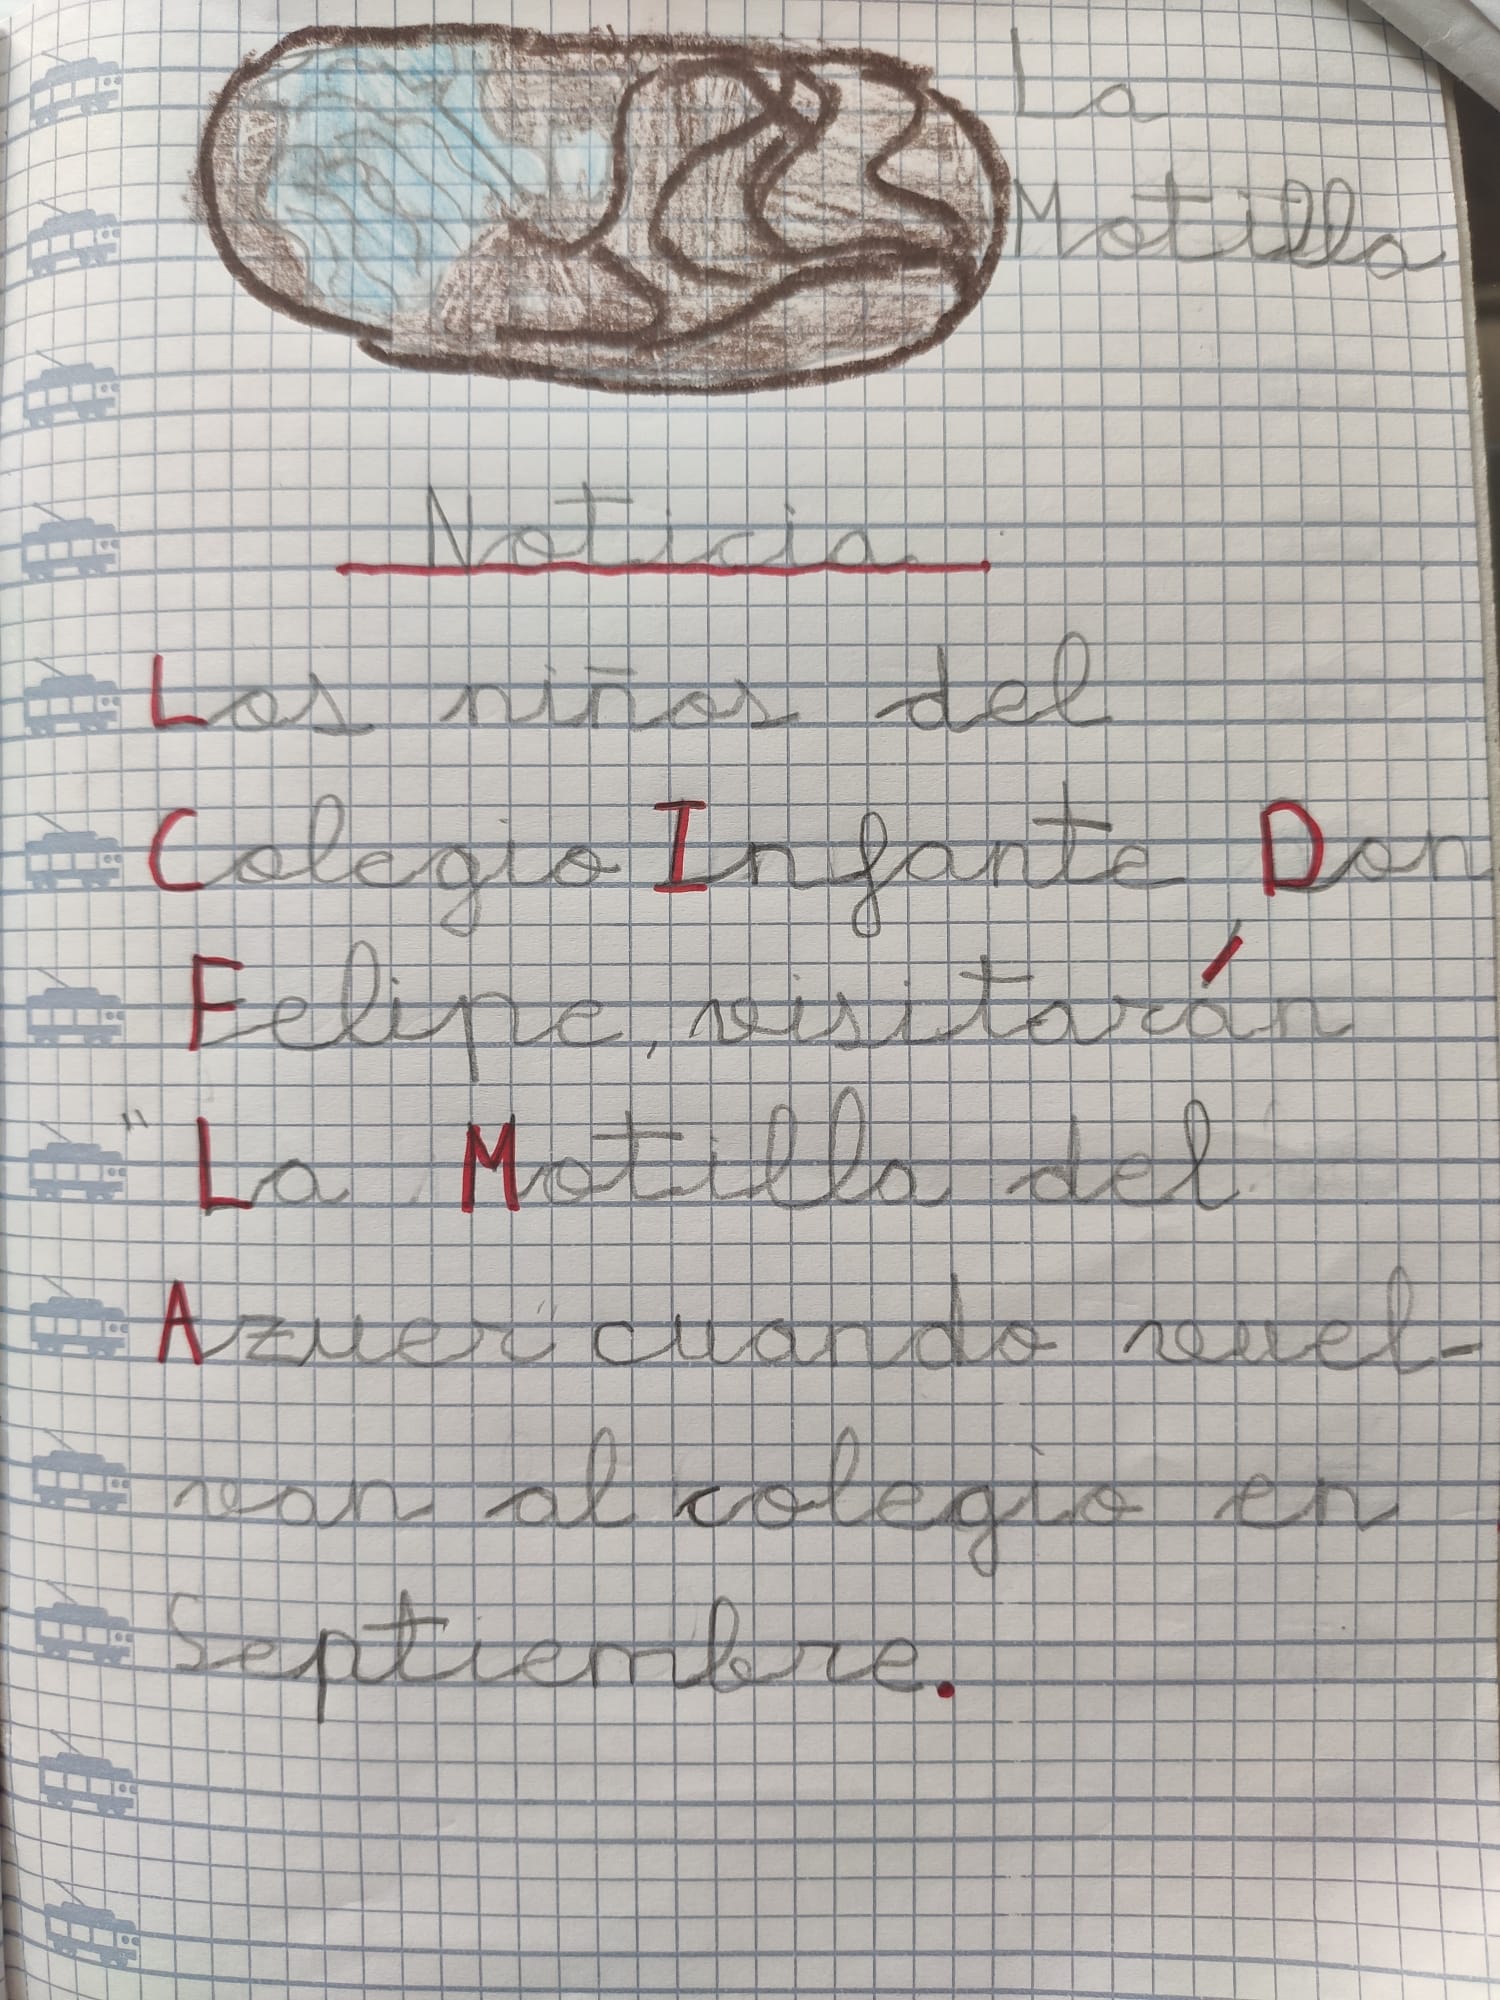 La
Motilla
Noticia
Los niños del
Colegio Infante Don
Felipe, visitarán
"La Motilla del
Azuer" cuando vuel-
van al colegio en
Septiembre.